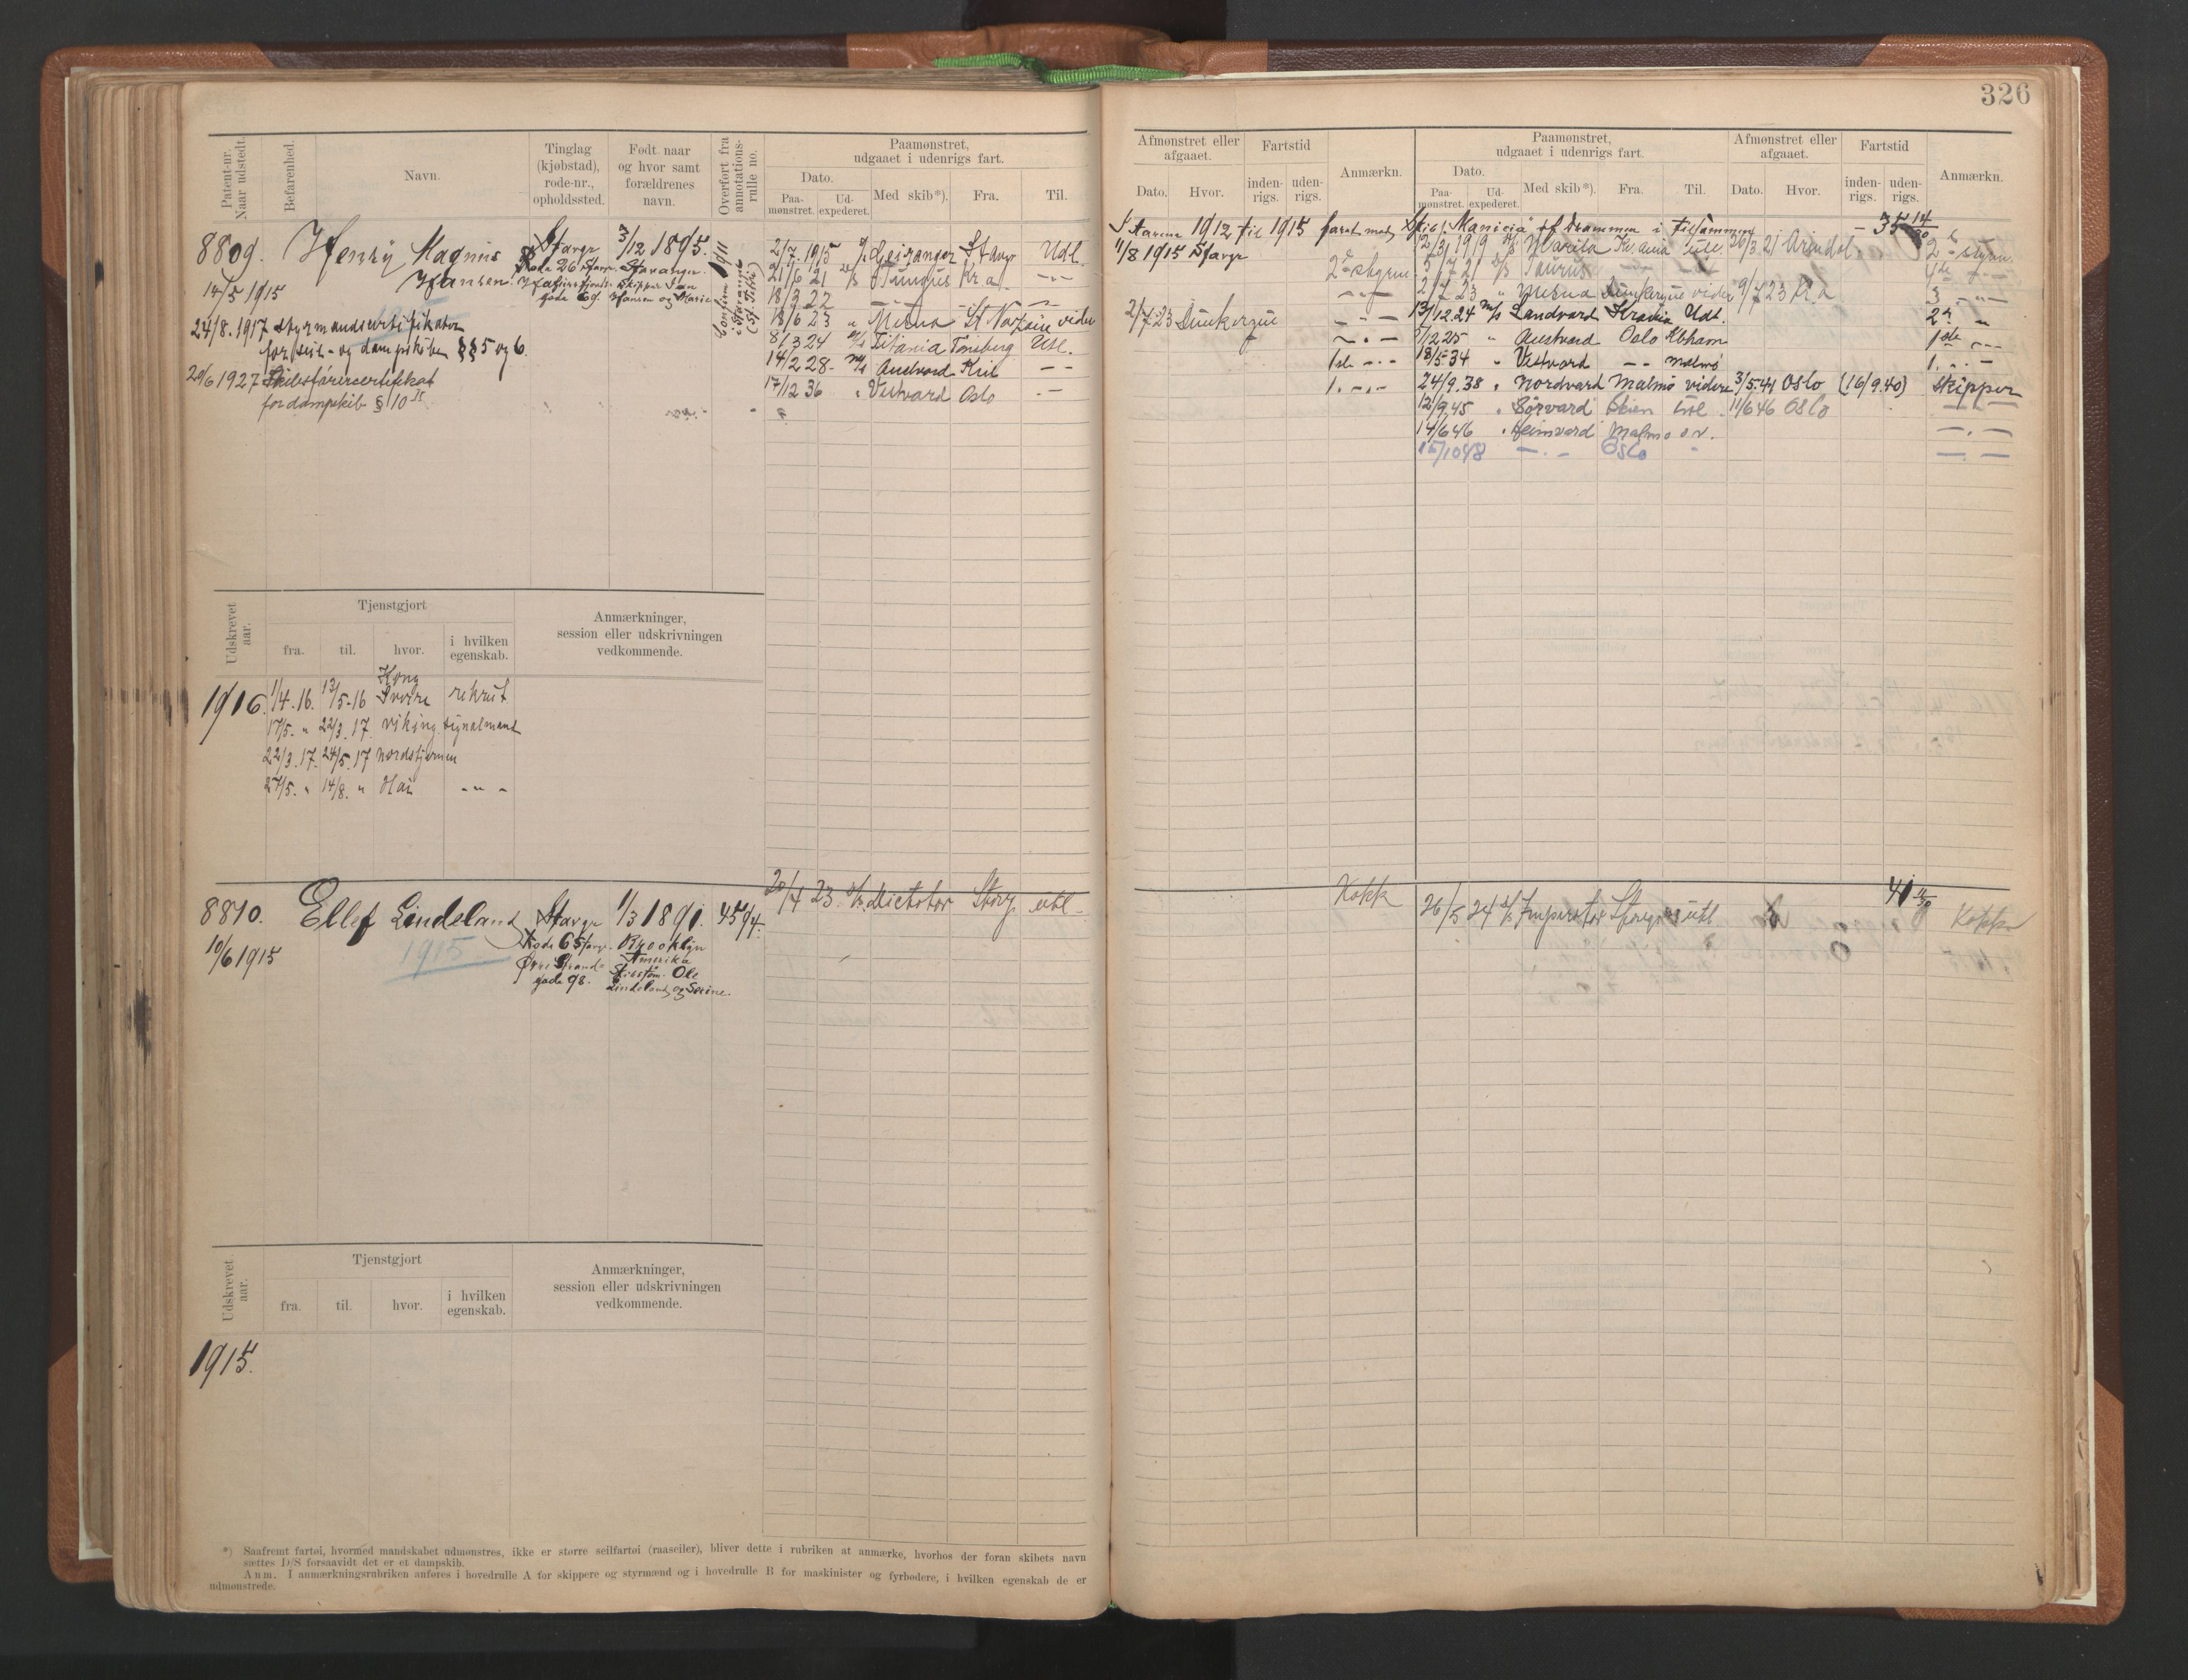 326
Patent-nr. Naar udstedt.
Befarenhed.
Navn.
Tinglag (kjøbstad), rode-nr., opholdssted.
Født naar og hvor samt forældrenes navn.
Overført fra annotationsrulle no.
Paamønstret, udgaaet i udenrigs fart.
Dato.
Paamønstret.
Udexpederet.
Med skib*).
Fra.
Til.
Afmønstret eller afgaaet.
Dato.
Hvor.
Fartstid
indenrigs.
udenrigs.
Anmærkn.
Paamønstret, udgaaet i udenrigs fart.
Dato.
Paamønstret.
Udexpederet.
Med skib*).
Fra.
Til.
Afmønstret eller afgaaet.
Dato.
Hvor.
Fartstid
indenrigs.
udenrigs.
Anmærkn.
8809. Henry Magnus Hansen.
14/5 1915
24/8. 1917 styrmandscertifikater
for seil- og dampskibe §§ 5 og 6.
20/6 1927 Skibsførercertifikat
for dampskib § 10
Stavgr
Rode 26 Stavgr.
gade 69.
3/12 1895.
Stavanger.
Skipper Jan
Hansen og Marie
2/7. 1915 Geiranger Stavgr Udl.
21/6 21 Taurus Kr a. -"-
18/3 22 -"- -"- -"-
18/6 23 " Mesna St Nazaire videre
8/3 24 Titania Tønsberg Utl.
14/2 28 - M/S Austvard Kra - -
17/12 36 " Vestvard Oslo -
1912 til 1915 faret med Skib "Manicia" af Drammen i tilsammen - 35 14/30
11/8 1915 Stavgr
2/7 23 Dunkerque
12/3 1919 Marita Kr.ania utl. 20/3 21 Arendal 2 styrm.
5/7 21 D/S Taurus
2/7 23 " Mesna Dunkerque videre 9/7 23 Kr.a 3 - " -
13/12.24 M/S Landvard Krania Udl. 2n "
1/12 25 " Austvard Oslo Kbhavn 1ste - -
18/5 34 " Vestvard - - Malmö 1. - -
24/9.38 " Nordvard Malmö videre 3/5.41 Oslo (16/9.40) Skipper
12/9.45 " Sörvard Skien Utl 11/6 46 Oslo
14/6 46 " Heimvard Malmö o.v.
15/10 48 - . - Oslo - - . -
Udskrevet aar.
Tjenstgjort
fra.
til.
hvor.
i hvilken egenskab.
Anmærkninger, session eller udskrivningen vedkommende.
1916. 1/4.16. 13/5-16 Kong Sverre rekrut
17/5. " 22/3.17. Viking signalmand
22/3.17. 24/5.17 Nordstjernen
24/5. " 14/8. " Hai - " -
8810. Ellef Lindeland
10/6 1915
1915
Stavgr
Rode 6 Stavgr.
Øvre Strand-
gade 98.
1/3 1891.
Brooklyn
Amerika
Skibstøm. Ole
Lindeland og Serine.
20/4 23 D/S Dictator Stavg. utl -
Kokk
26/5 24 D/S Imperator Stavgr utl
Kokk
Udskrevet aar.
Tjenstgjort
fra.
til.
hvor.
i hvilken egenskab.
Anmærkninger, session eller udskrivningen vedkommende.
1915.
*) Saafremt fartøi, hvormed mandskabet udmønstres, ikke er større seilfartøi (raaseiler), bliver dette i rubriken at anmærke, hvorhos der foran skibets navn
sættes D/S forsaavidt det er et dampskib.
Anm. I anmærkningsrubriken anføres i hovedrulle A for skippere og styrmænd og i hovedrulle B for maskinister og fyrbødere, i hvilken egenskab de er
udmønstrede.